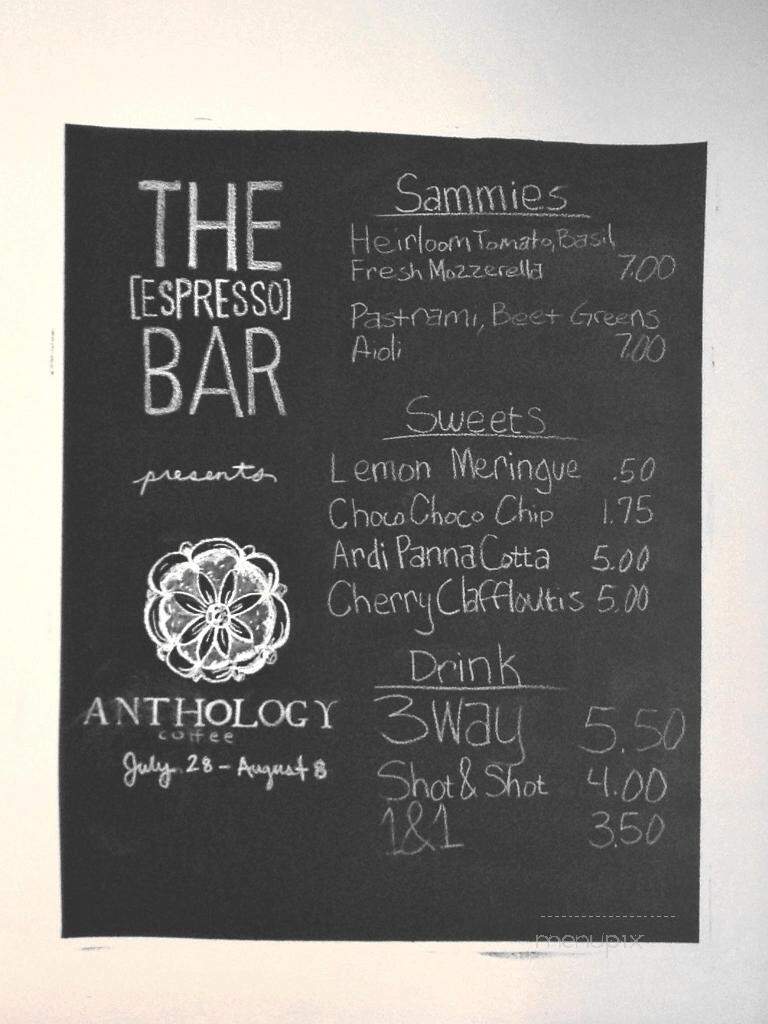 THE
[ESPRESSO]
BAR
presents
ANTHOLOGY
coffee
July 28 - August 8
Sammies
Heirloom Tomato, Basil
Fresh Mozzerella 7.00
Pastrami, Beet Greens
Aioli 7.00
Sweets
Lemon Meringue .50
Choco Choco Chip 1.75
Ardi Panna Cotta 5.00
Cherry Claffloutis 5.00
Drink
3 Way 5.50
Shot & Shot 4.00
1&1 3.50
menupix